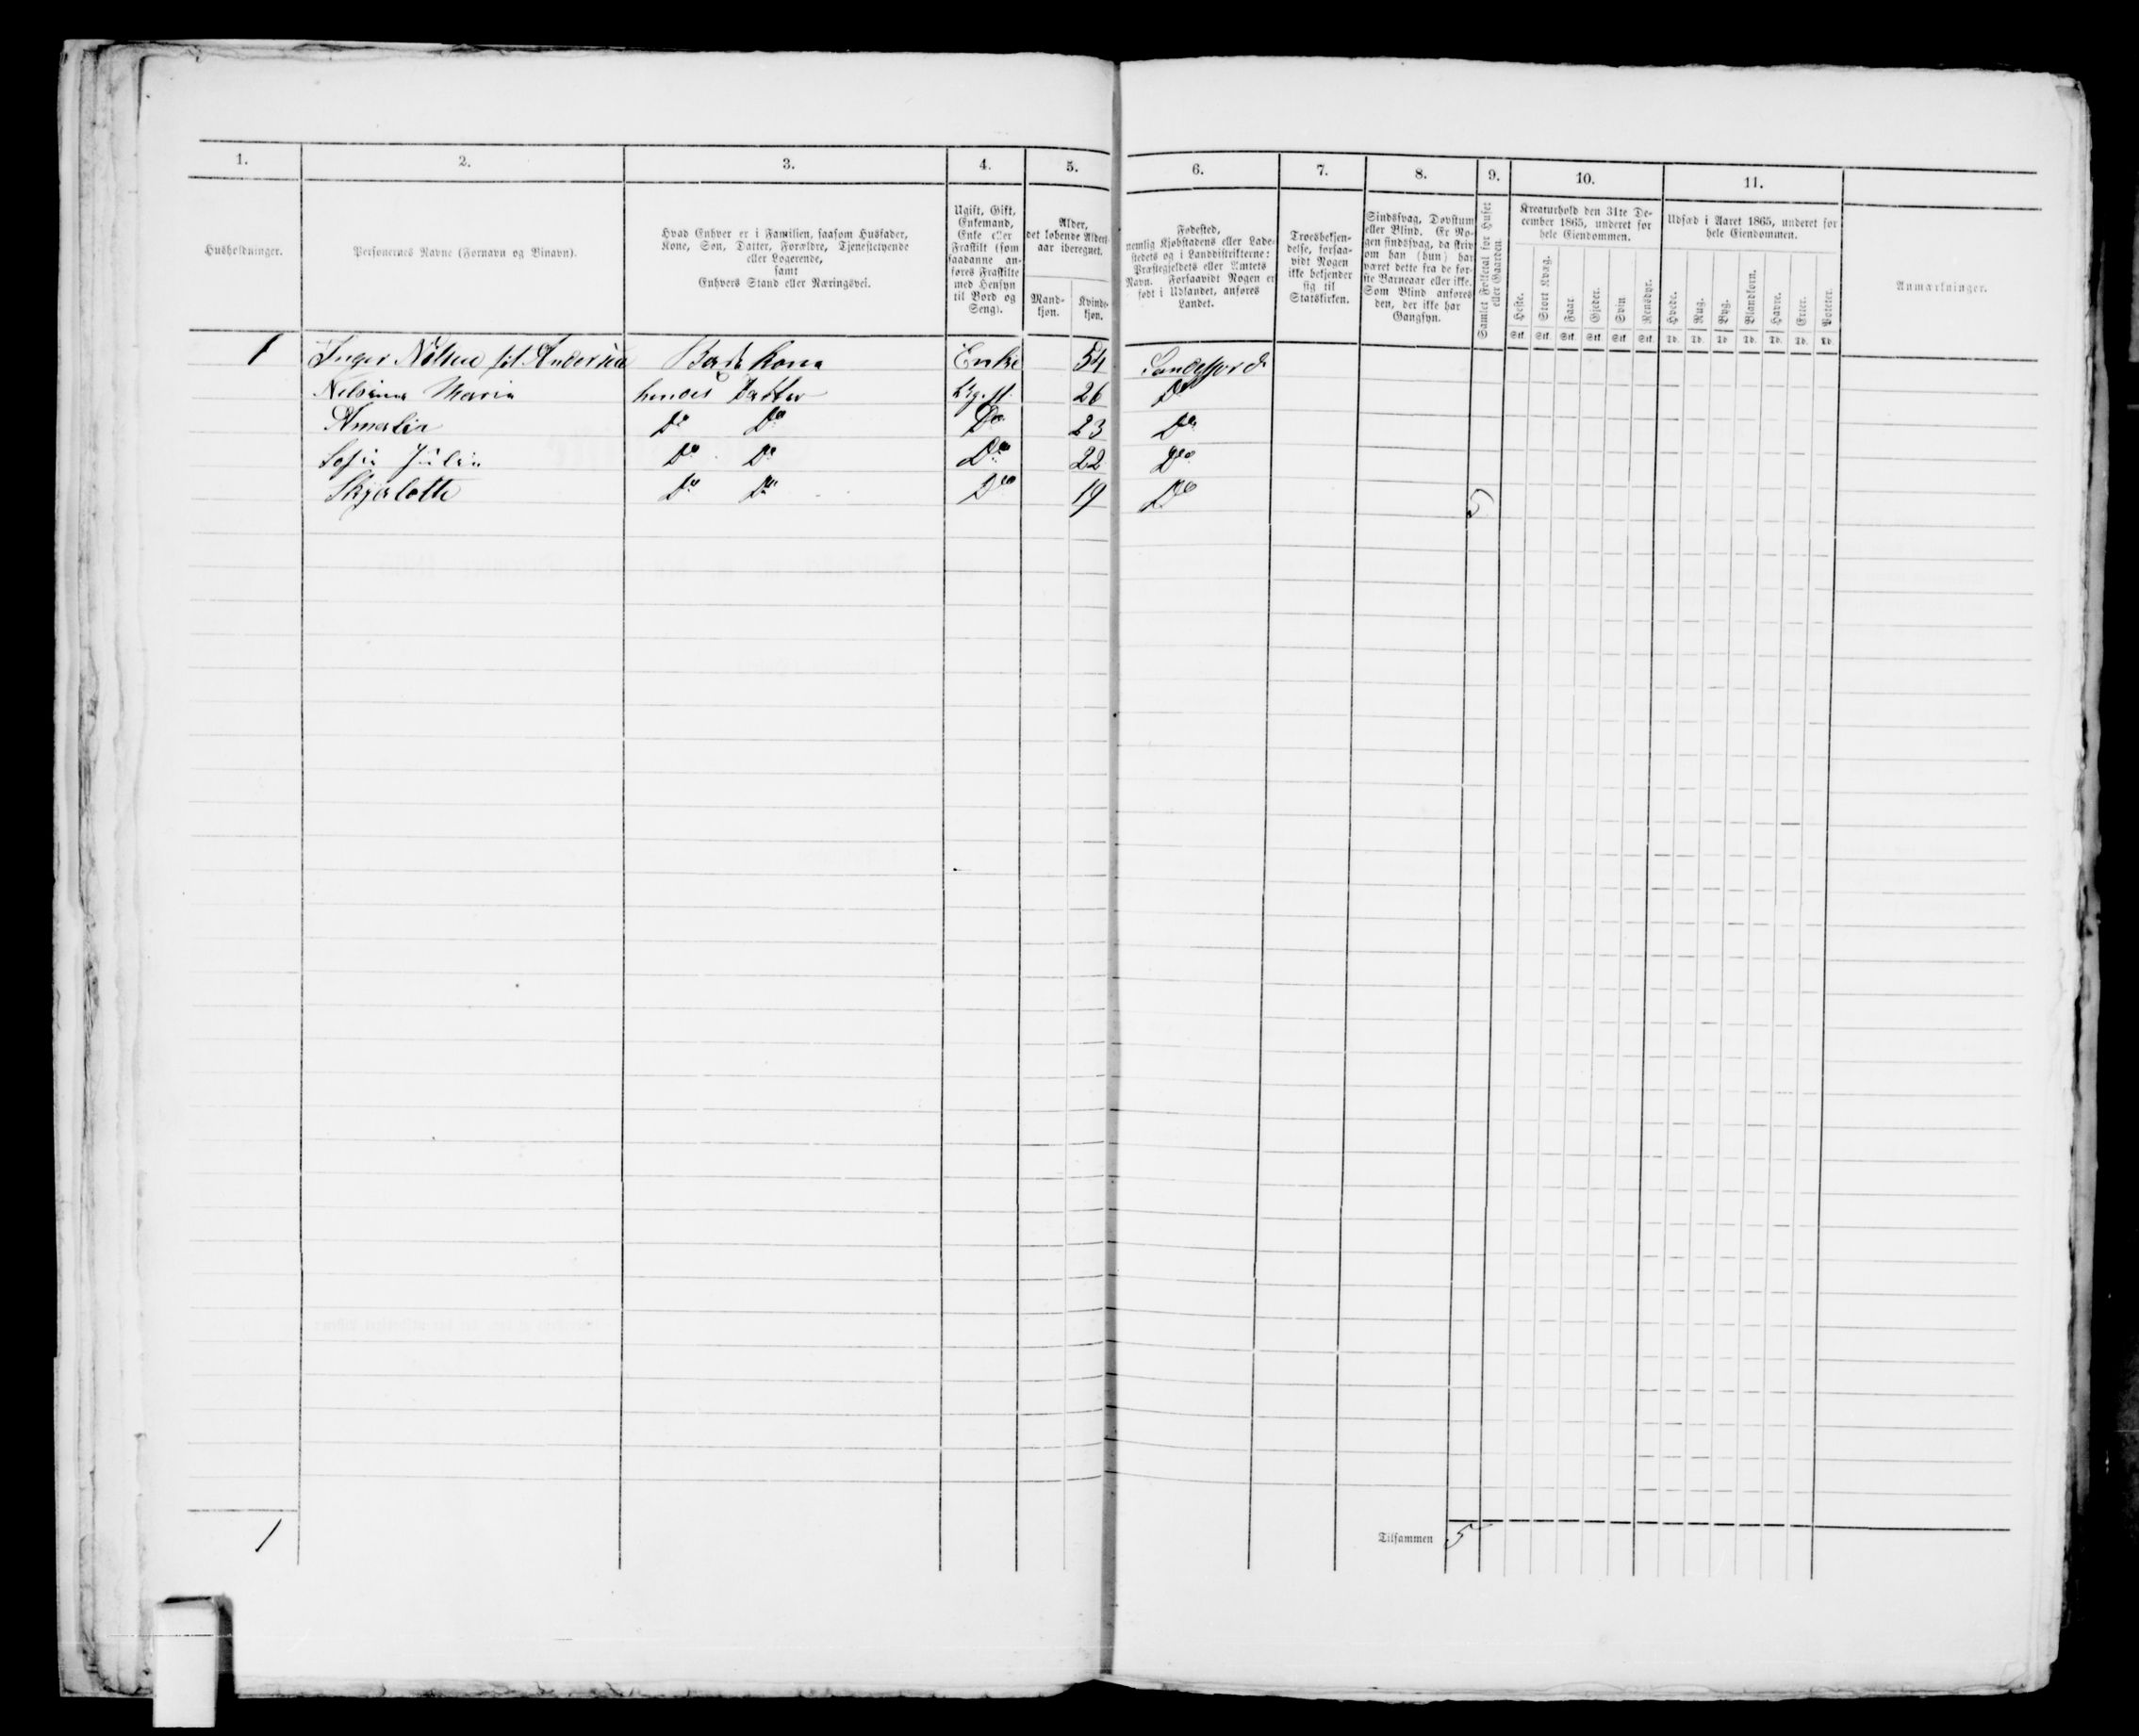 1. 2. 3. 4. 5. 6. 7. 8. 9. 10. 11.
Husholdninger.
Personernes Navne (Fornavn og Binavn).
Hvad Enhver er i Familien, saasom Husfader,
Kone, Søn, Datter, Forældre, Tjenestetyende
eller Logerende,
samt
Enhvers Stand eller Næringsvei.
Ugift, Gift,
Enkemand,
Enke eller
Fraskilt (som
saadanne an-
føres Fraskilte
med Hensyn
til Bord og
Seng).
Alder,
det løbende Alders-
aar iberegnet.
Mand-
kjøn.
Kvinde-
kjøn.
Fødested,
nemlig Kjøbstadens eller Lade-
stedets og i Landdistrikterne:
Præstegjeldets eller Amtets
Navn. Forsaavidt Nogen er
født i Udlandet, anføres
Landet.
Troesbekjen-
delse, forsaa-
vidt Nogen
ikke bekjender
sig til
Statskirken.
Sindssvag, Døvstum
eller Blind. Er No-
gen sindssvag, da skriv
om han (hun) har
været dette fra de før-
ste Barneaar eller ikke.
Som Blind anføres
den, der ikke har
Gangsyn.
Samlet Folketal for Huset
eller Gaarden.
Kreaturhold den 31te De-
cember 1865, underet for
hele Eiendommen.
Heste. Stort Kvæg. Faar. Gjeder. Svin. Rensdyr.
Stk. Stk. Stk. Stk. Stk. Stk.
Udsæd i Aaret 1865, underet for
hele Eiendommen.
Hvede. Rug. Byg. Blandkorn. Havre. Erter. Poteter.
Td. Td. Td. Td. Td. Td. Td.
Anmærkninger.
1 Inger Nilsen fød Andersen Enke 54 Sandefjord
Maria hendes Datter Ugift 26 Do
Amalia Do Do Do 23 Do
Sofie Julie Do Do Do 22 Do
Do Do Do 19 Do 5
1 Tilsammen 5